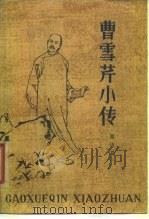 曹雪芹小传
CAOXUEQIN XIAOZHUAN